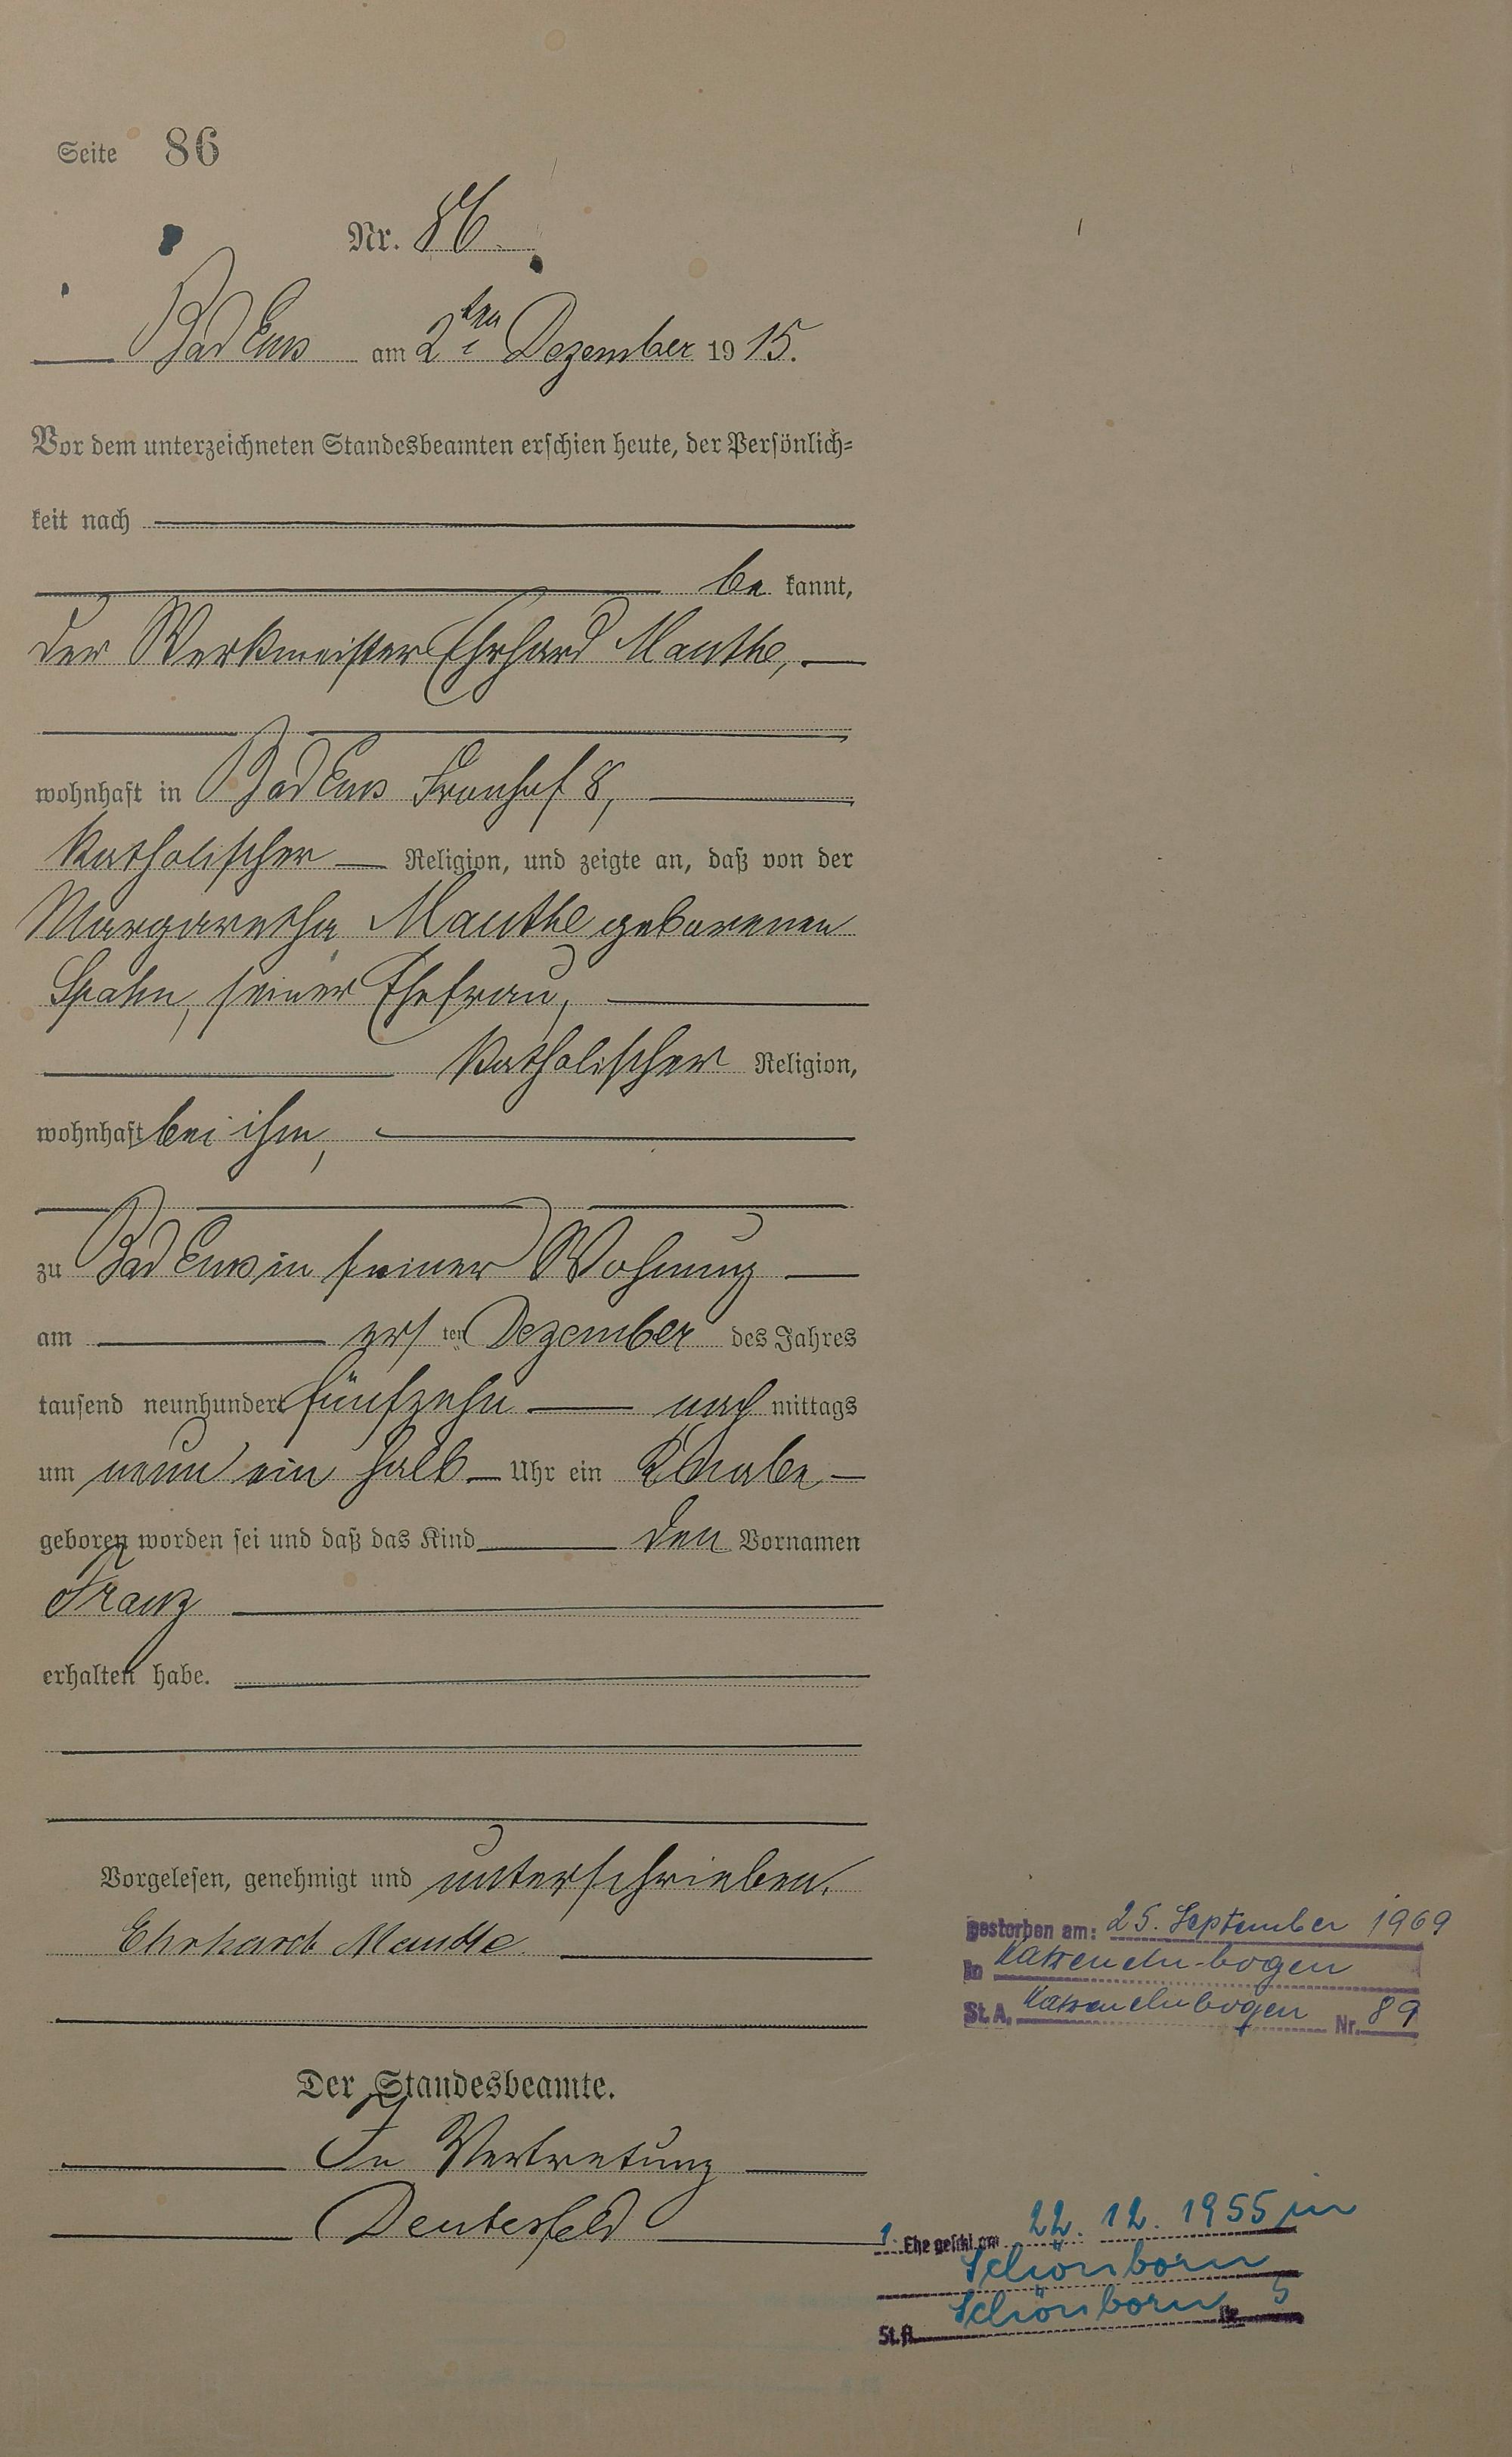 Seite 86
Nr. 86.
Bad Ems am 2ten Dezember 1915.
Vor dem unterzeichneten Standesbeamten erschien heute, der Persönlich-
keit nach
be kannt,
der Werkmeister Ehrhard Manthe,
wohnhaft in Bad Ems Fronhof 8,
katholischer Religion, und zeigte an, daß von der
Margaretha Manthe geborenen
Spahn, seiner Ehefrau,
katholischer Religion,
wohnhaft bei ihm,
zu Bad Ems in seiner Wohnung
am ersten Dezember des Jahres
tausend neunhundert fünfzehn nachmittags
um neun ein halb Uhr ein Knabe
geboren worden sei und daß das Kind den Vornamen
Franz
erhalten habe.
Vorgelesen, genehmigt und unterschrieben.
Ehrhardt Manthe.
Der Standesbeamte.
In Vertretung
gestorben am: 25. September 1969
in Katzenelnbogen
St.A. Katzenelnbogen Nr. 89
1. Ehe geschl. am 22. 12. 1955 in
Schönborn
St.A. Schönborn Nr. 5